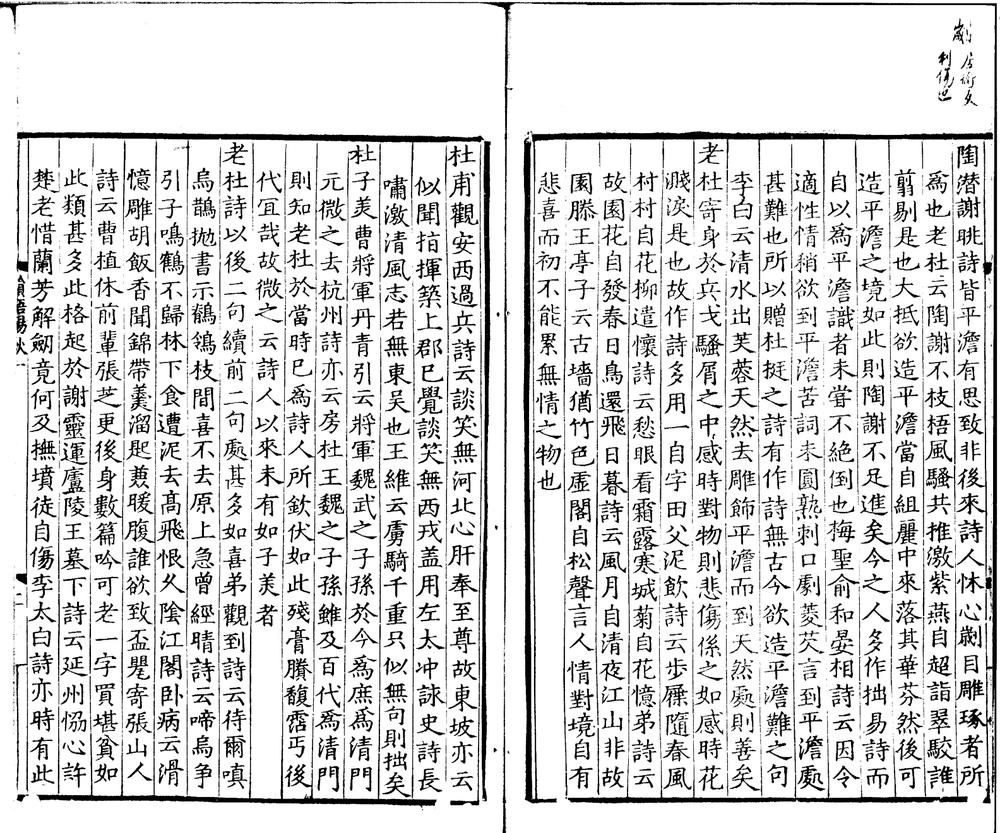 劌 居衛反
利傷也
陶潜謝朓詩皆平澹有思致非後來詩人怵心劌目雕琢者所
爲也老杜云陶謝不枝梧風騷共推激紫燕自超詣翠駮誰
剪剔是也大抵欲造平澹當自組麗中來落其華芬然後可
造平澹之境如此則陶謝不足進矣今之人多作拙易詩而
自以爲平澹識者未甞不絶倒也梅聖俞和晏相詩云因令
適性情稍欲到平澹苦詞未圓熟刺口劇菱芡言到平澹處
甚難也所以贈杜挺之詩有作詩無古今欲造平澹難之句
李白云清水出芙蓉天然去雕飾平澹而到天然處則善矣
老杜寄身於兵戈騷屑之中感時對物則悲傷係之如感時花
濺淚是也故作詩多用一自字田父泥飲詩云步屧隨春風
村村自花柳遣懷詩云愁眼看霜露寒城菊自花憶弟詩云
故園花自發春日鳥還飛日暮詩云風月自清夜江山非故
園滕王亭子云古墻猶竹色虛閣自松聲言人情對境自有
悲喜而初不能累無情之物也
杜甫觀安西過兵詩云談笑無河北心肝奉至尊故東坡亦云
似聞指揮築上郡已覺談笑無西戎盖用左太冲詠史詩長
嘯激清風志若無東吴也王維云虜騎千重只似無句則拙矣
杜子美曹將軍丹青引云將軍魏武之子孫於今爲庶爲清門
元微之去杭州詩亦云房杜王魏之子孫雖及百代爲清門
則知老杜於當時已爲詩人所欽伏如此殘膏賸馥霑丐後
代宜哉故微之云詩人以來未有如子美者
老杜詩以後二句續前二句處甚多如喜弟觀到詩云待爾嗔
烏鵲抛書示鶺鴒枝間喜不去原上急曾經晴詩云啼烏争
引子鳴鶴不歸林下食遭泥去高飛恨久陰江閣卧病云滑
憶雕胡飯香聞錦帶羹溜匙兼暖腹誰欲致盃罌寄張山人
詩云曹植休前輩張芝更後身數篇吟可老一字買堪貧如
此類甚多此格起於謝靈運廬陵王墓下詩云延州恊心許
楚老惜蘭芳解劒竟何及撫墳徒自傷李太白詩亦時有此
韻語陽秋一
二